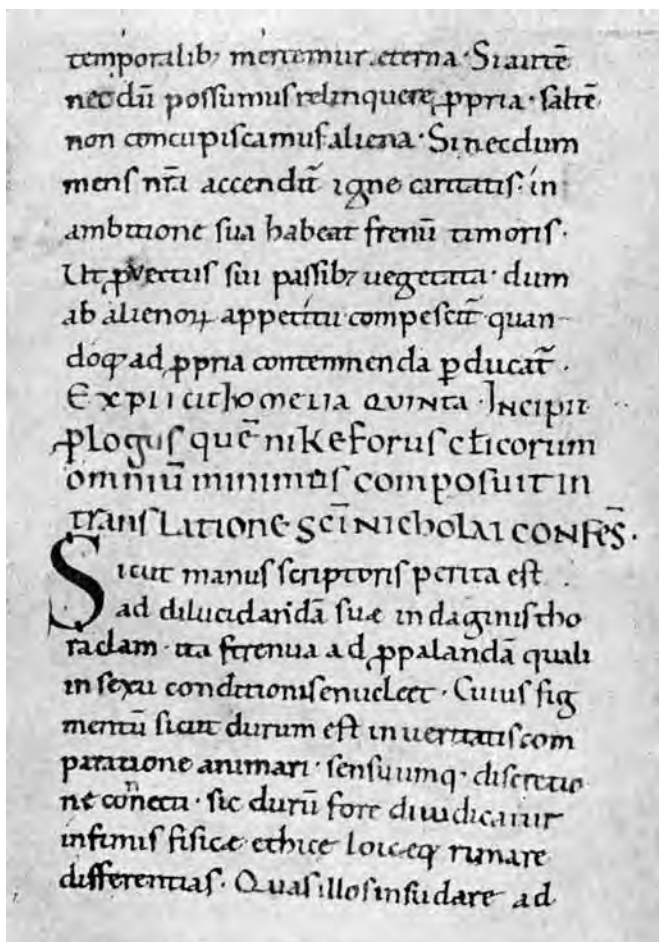 temporalib; mercemur eterna · Si autē
necdū possumus relinquere, ꝓpria · saltē
non concupiscamus aliena · Si necdum
mens nr̄a accendit᷑ igne caritatis · in
ambitione sua habeat frenū timoris ·
Ut ꝓvectus sui passib; uegetata · dum
ab alienoꝝ appetitu compescit᷑ · quan-
doq; ad ꝓpria contemnenda ꝑducat᷑ ·
Explicit homelia quinta · Incipit
ꝓlogus quē nikeforus cl̄icorum
omniū minimus composuit in
translatione sc̄i Nicholai confes̄ ·
Sicut manus scriptoris perita est
ad dilucidandā suæ indaginis tho
raclam · ita strenua ad ꝓpalandā quali
in sexu conditionis enucleet · Cuius fig
mentū sicut durum est in ueritatis com
paratione animari · sensuumq; discretio
ne conecti · sic durū fore diiudicatur
infimis fisicæ ethice loicæq; rimare
differentias · Quas illos insudare ad